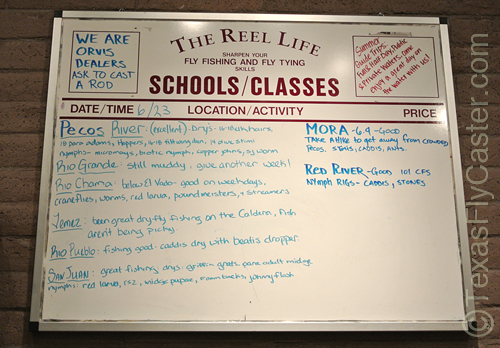 WE ARE
ORVIS
DEALERS
ASK TO CAST
A ROD
THE REEL LIFE
SHARPEN YOUR
FLY FISHING AND FLY TYING
SKILLS
SCHOOLS/CLASSES
Summer
Guide Trips.
Full & Half Day, Public
& Private Waters. Come
enjoy a great day on
the water with us!
DATE/TIME 6/23 LOCATION/ACTIVITY PRICE
Pecos River: (excellent) - Drys -
18 para adams, Hoppers,
nymphs - micromays, biotic nymph, copper johns, sj worm
Rio Grande: Still muddy, give another week!
Rio Chama: below El Vado - good on weekdays,
craneflies, worms, red larva, poundmeisters, + streamers
Jemez: been great dry fly fishing on the Caldera, fish
aren't being picky.
Rio Pueblo: fishing good: caddis dry with beatis dropper
San Juan: great fishing, drys: griffin gnats, para adult midge
nymphs: red larva, rs2, midge pupae, foam backs, johnny flash
MORA - 6.9 - GOOD
TAKE A HIKE TO GET AWAY FROM CROWDS
PECOS, STIMIS, CADDIS, ANTS.
RED RIVER - GOOD, 101 CFS
NYMPH RIGS - CADDIS, STONES
©TexasFlyCaster.com